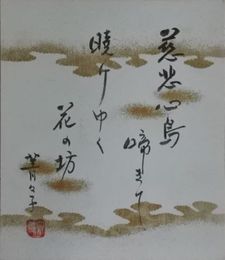 慈悲心鳥
啼きて
暁けゆく
花の坊